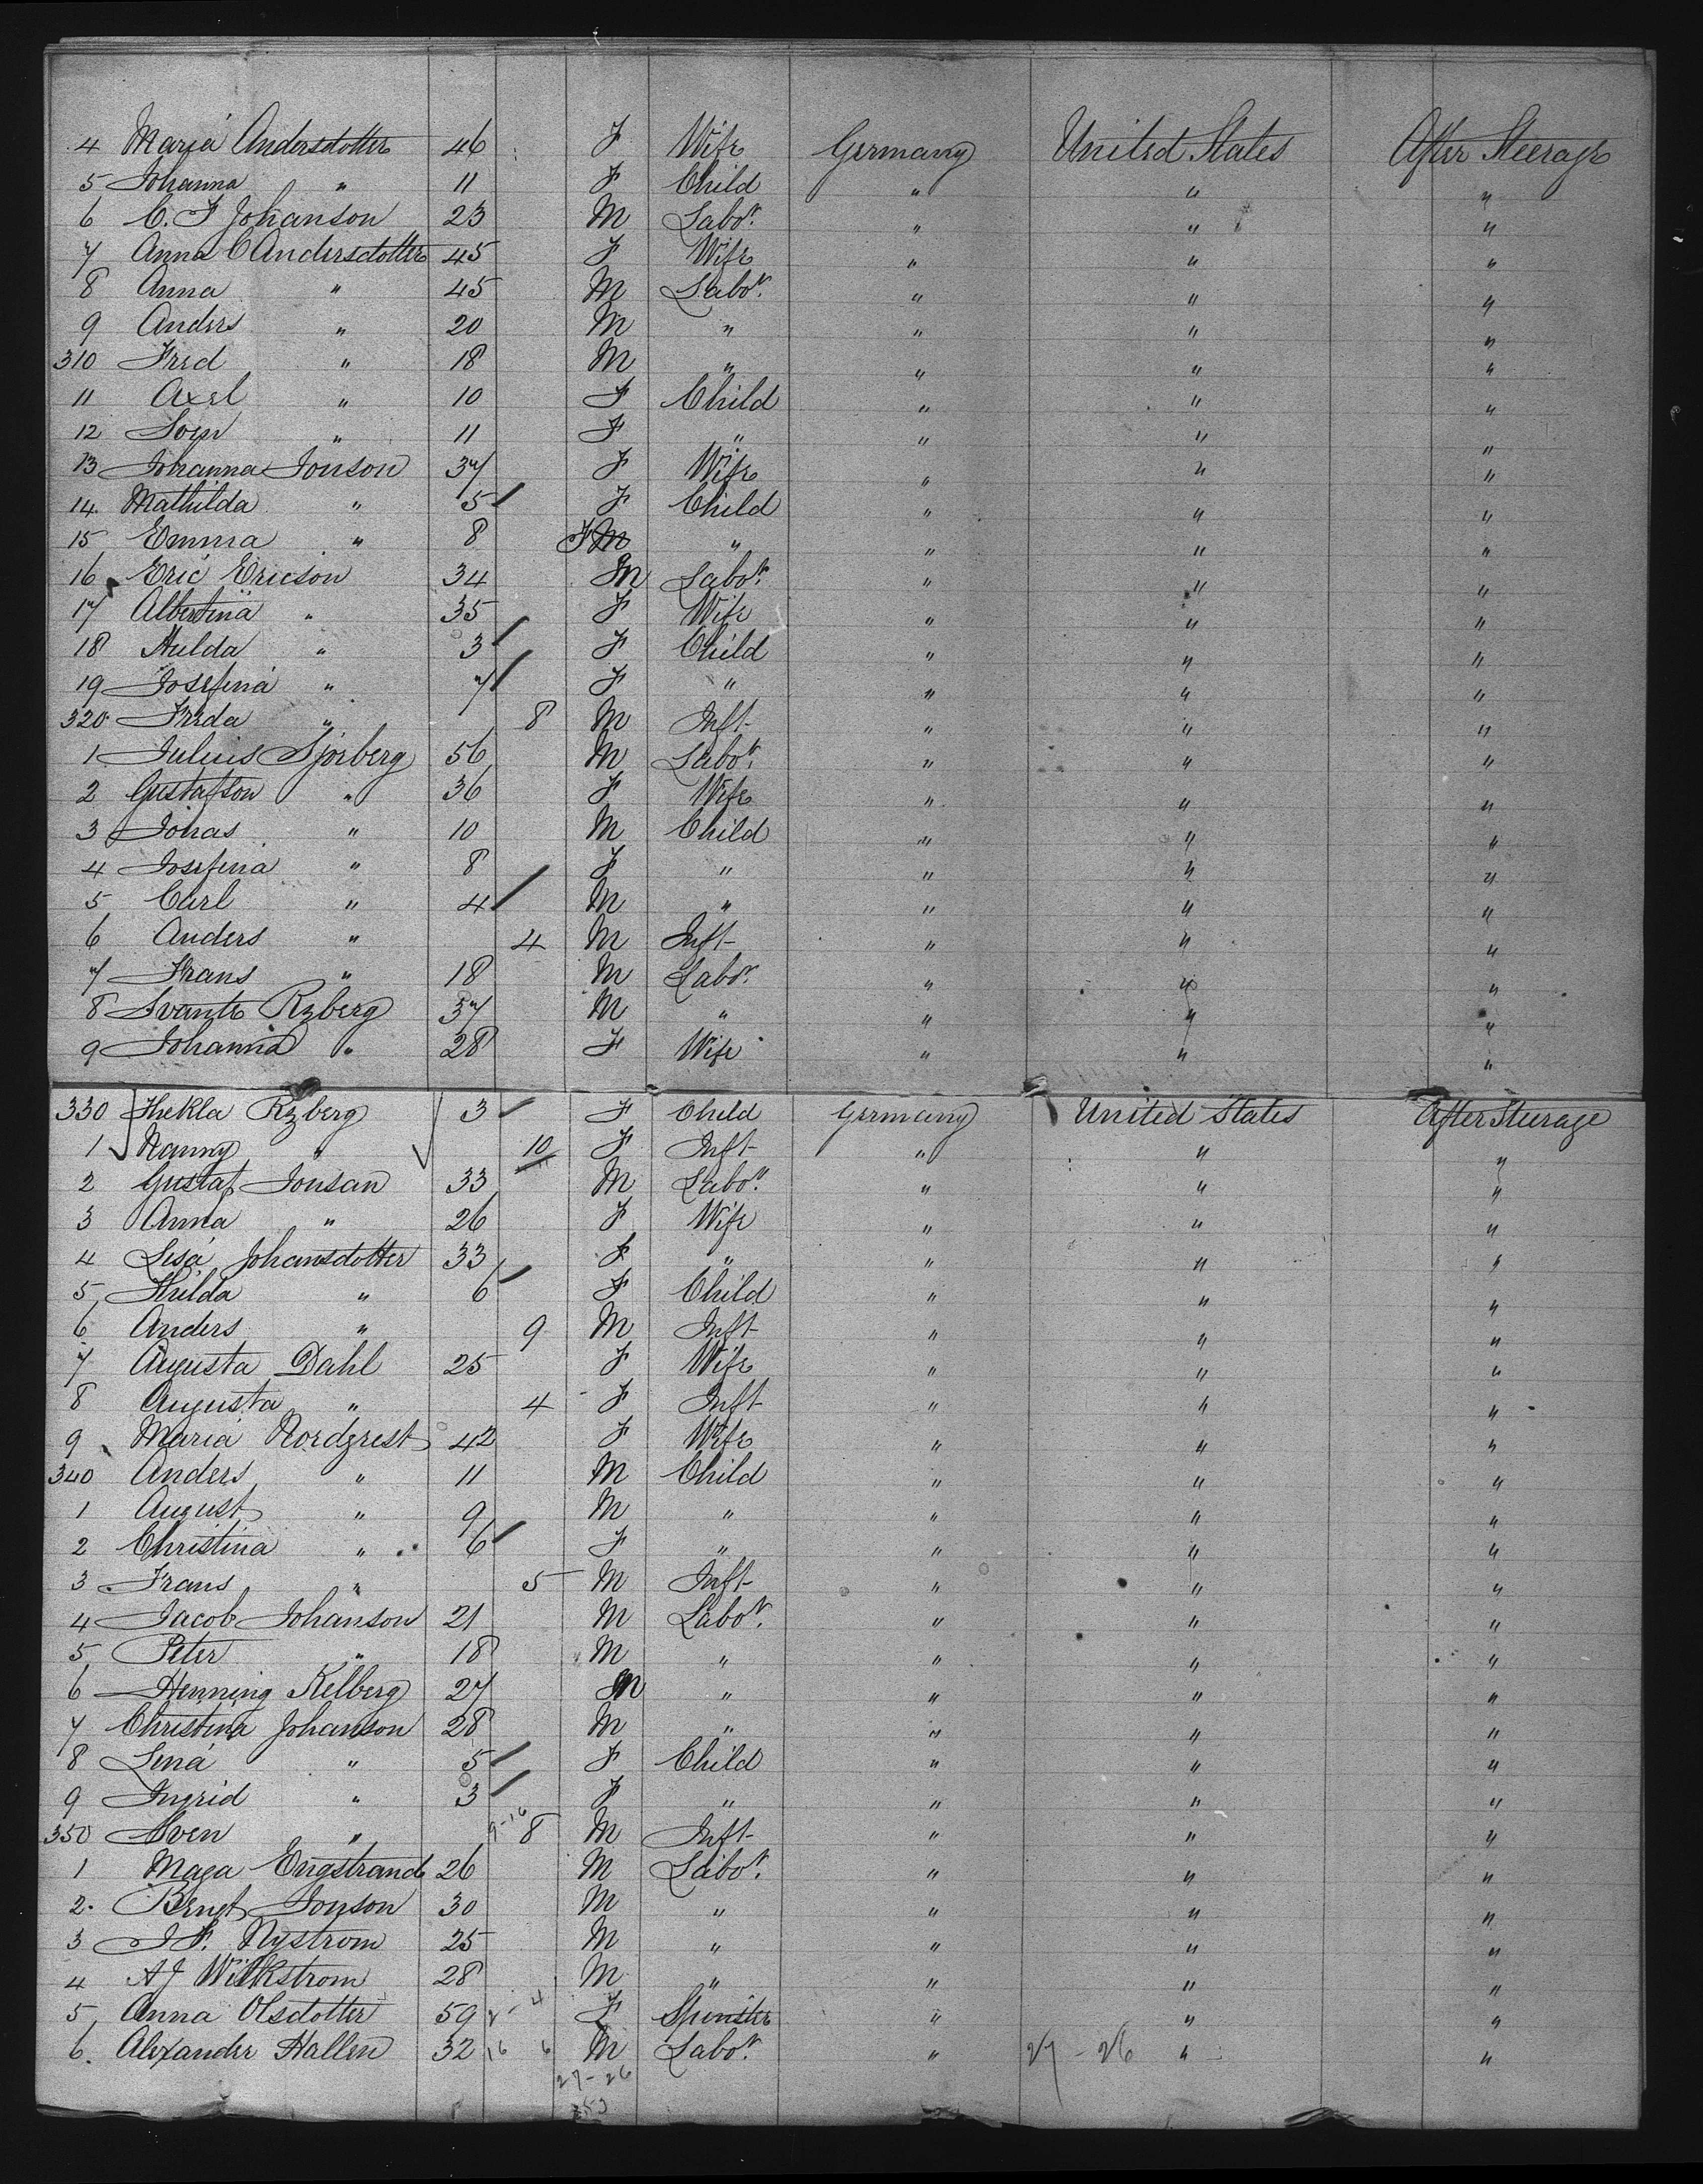 4 Maria Andersdotter 46 F Wife Germany United States After Steerage
5 Johanna " 11 F Child " " "
6 C. F Johanson 23 M Labor. " " "
7 Anna C Andersdotter 45 F Wife " " "
8 Anna " 45 M Labor. " " "
9 Anders " 20 M " " " "
310 Fred " 18 M " " " "
11 Axel " 10 F Child " " "
12 " 11 F " " " "
13 Johanna Jonson 37 F Wife " " "
14 Mathilda " 5 F Child " " "
15 Emma " 8 F M " " " "
16 Eric Ericson 34 M Labor. " " "
17 Albertina " 35 F Wife " " "
18 Hulda " 3 F Child " " "
19 Josefina " 7 F " " " "
320 Frida " 8 M Inft " " "
1 Julius Sjorberg 56 M Labor. " " "
2 Gustafson " 36 F Wife " " "
3 Jonas " 10 M Child " " "
4 Josefina " 8 F " " " "
5 Carl " 4 M " " " "
6 Anders " 4 M Inft " " "
7 Frans " 18 M Labor. " " "
8 Svante Rzberg 37 M " " " "
9 Johanna " 28 F Wife " " "
330 Thekla Rzberg 3 F Child Germany United States After Steerage
1 Nanny " 10 F Inft " " "
2 Gustaf Jonsan 33 M Labor. " " "
3 Anna " 26 F Wife " " "
4 Lisa Johansdotter 33 F " " " "
5 Hilda " 6 F Child " " "
6 Anders " 9 M Inft " " "
7 Augusta Dahl 25 F Wife " " "
8 Augusta " 4 F Inft " " "
9 Maria Nordgrest 42 F Wife " " "
340 Anders " 11 M Child " " "
1 August " 9 M " " " "
2 Christina " 6 F " " " "
3 Frans " 5 M Inft " " "
4 Jacob Johanson 21 M Labor. " " "
5 Peter " 18 M " " " "
6 Henning Kelberg 27 M " " " "
7 Christina Johanson 28 M " " " "
8 Lena " 5 F Child " " "
9 Ingrid " 3 F " " " "
350 Sven " 9-16 8 M Inft " " "
1 Maga Engstrand 26 M Labor. " " "
2. Bengt Jonson 30 M " " " "
3 J F. Nystrom 25 M " " " "
4 A J Wilkstrom 28 M " " " "
5 Anna Olsdotter 59 2-4 F Spinster " " "
6. Alexander Hallen 32 16 6 M Labor. " 27-26 " "
27-26